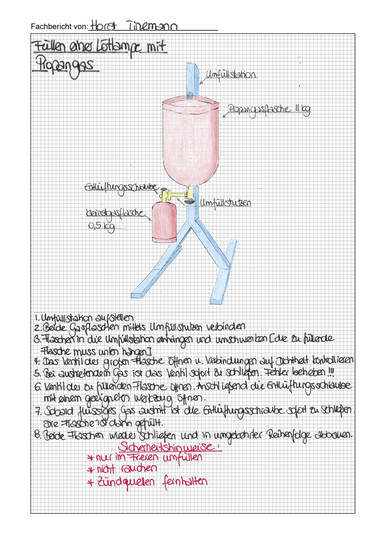 Fachbericht von: Horst Tinemann
Füllen einer Lötlampe mit
Propangas
Umfüllstation
Propangasflasche 11 kg
Entlüftungsschraube
Umfüllstutzen
Kleinstgasflasche
0,5 kg
1. Umfüllstation aufstellen
2. Beide Gasflaschen mittels Umfüllstutzen verbinden
3. Flaschen in die Umfüllstation einhängen und umschwenken [die zu füllende
Flasche muss unten hängen]
4. Das Ventil der großen Flasche öffnen u. Verbindungen auf Dichtheit kontrollieren
5. Bei austretendem Gas ist das Ventil sofort zu schließen. Fehler beheben!!!
6. Ventil der zu füllenden Flasche öffnen. Anschließend die Entlüftungsschraube
mit einem geeigneten Werkzeug öffnen.
7. Sobald flüssiges Gas austritt ist die Entlüftungsschraube sofort zu schließen
Die Flasche ist dann gefüllt.
8. Beide Flaschen wieder schließen und in umgekehrter Reihenfolge abbauen.
Sicherheitshinweise:
* nur im Freien umfüllen
* nicht rauchen
* Zündquellen fernhalten